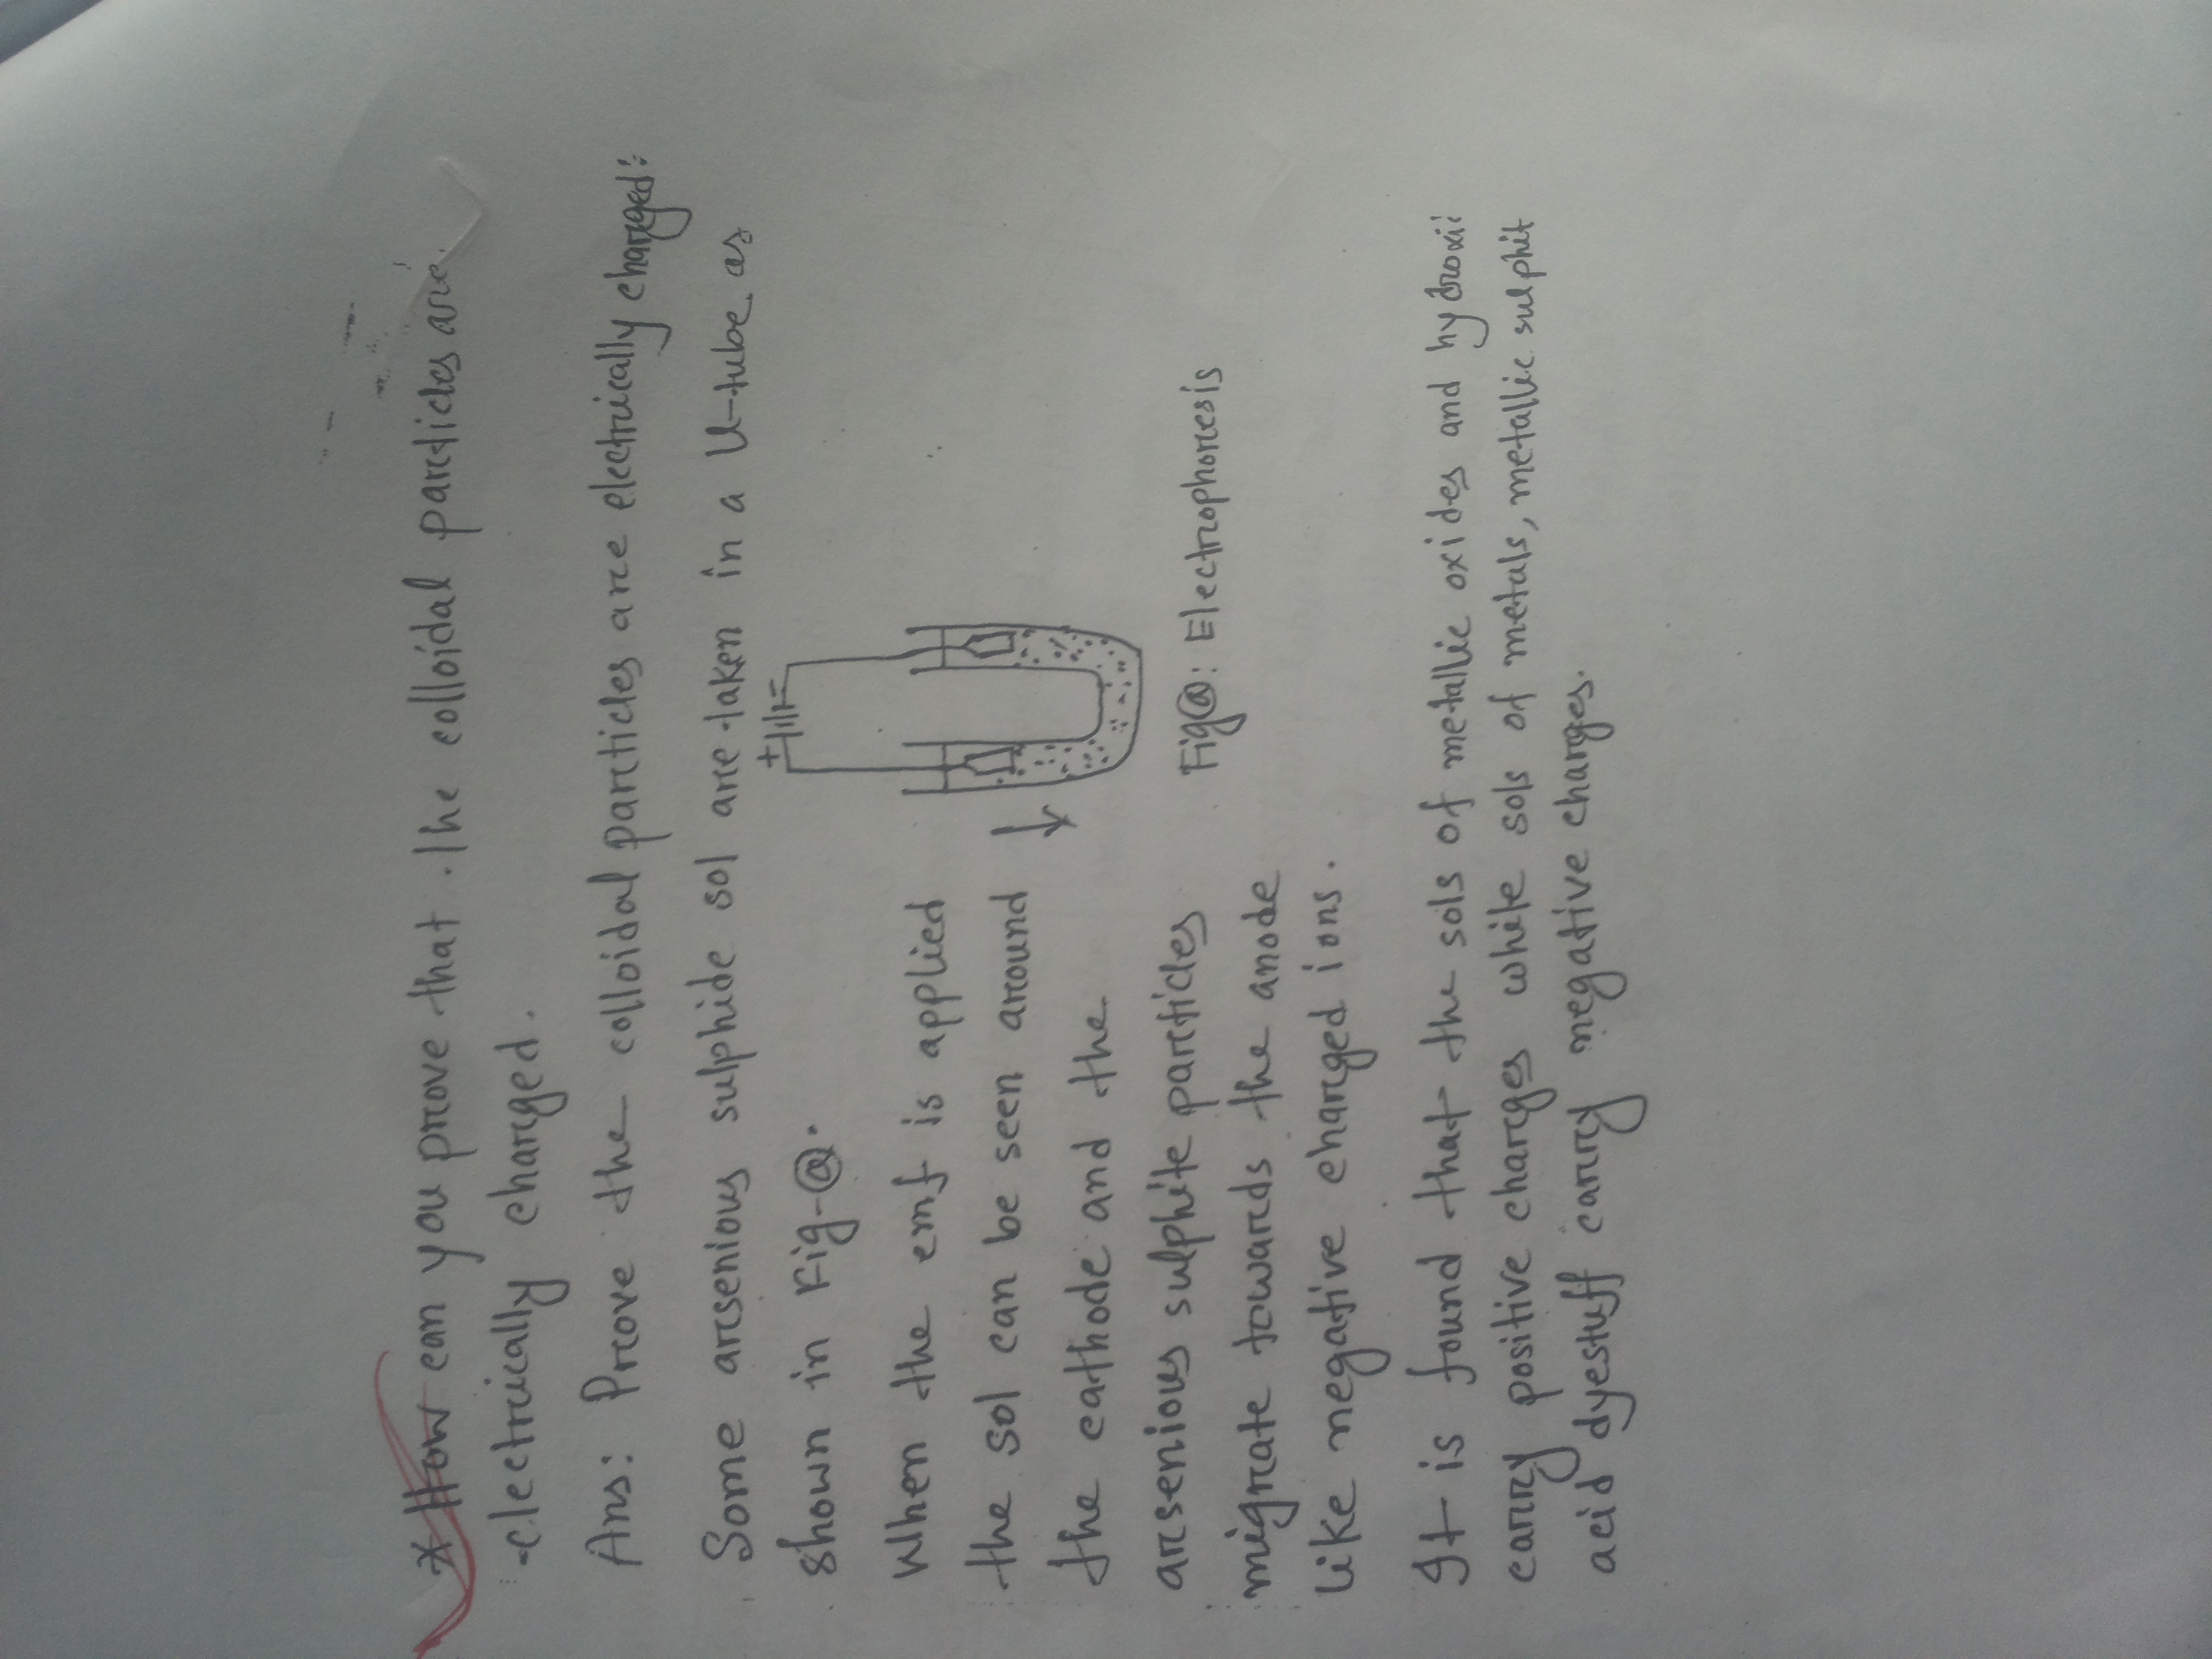 * How can you prove that the colloidal particles are
electrically charged.
Ans: Prove the colloidal particles are electrically charged:
Some arsenious sulphide sol are taken in a U-tube as
shown in Fig-ⓐ.
+ -
When the emf is applied
the sol can be seen around
the cathode and the
arsenious sulphite particles
migrate towards the anode
like negative charged ions.
Figⓐ: Electrophoresis
It is found that the sols of metallic oxides and hydroxi
carry positive charges while sols of metals, metallic sulphit
acid dyestuff carry negative charges.